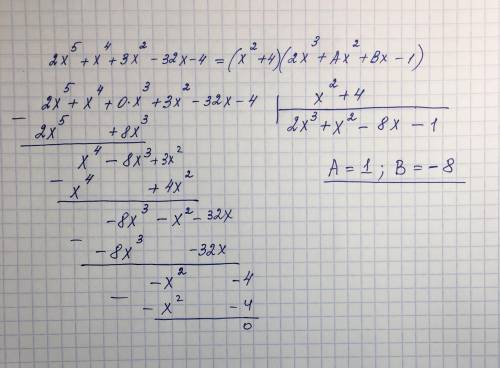 2x⁵ + x⁴ + 3x² - 32x - 4 = (x² + 4)(2x³ + Ax² + Bx - 1)
2x⁵ + x⁴ + 0·x³ + 3x² - 32x - 4 | x² + 4
- 2x⁵ + 8x³ | 2x³ + x² - 8x - 1
x⁴ - 8x³ + 3x²
- x⁴ + 4x²
A = 1 ; B = -8
-8x³ - x² - 32x
- -8x³ - 32x
-x² - 4
- -x² - 4
0